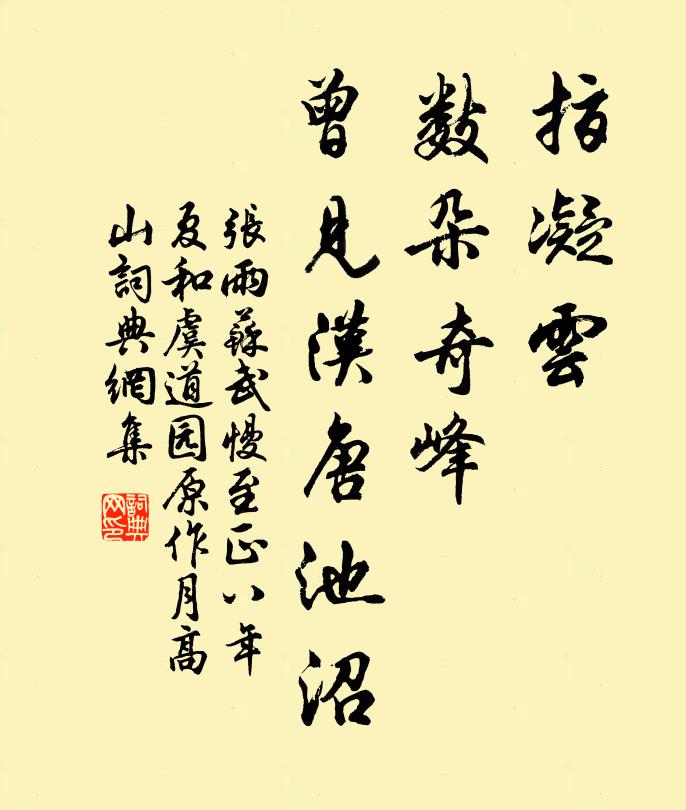 指凝雲
數朵奇峰
曾見漢唐池沼
張雨蘇武慢至正八年
夏和虞道园原作月高
山詞典網集
詞典
网印